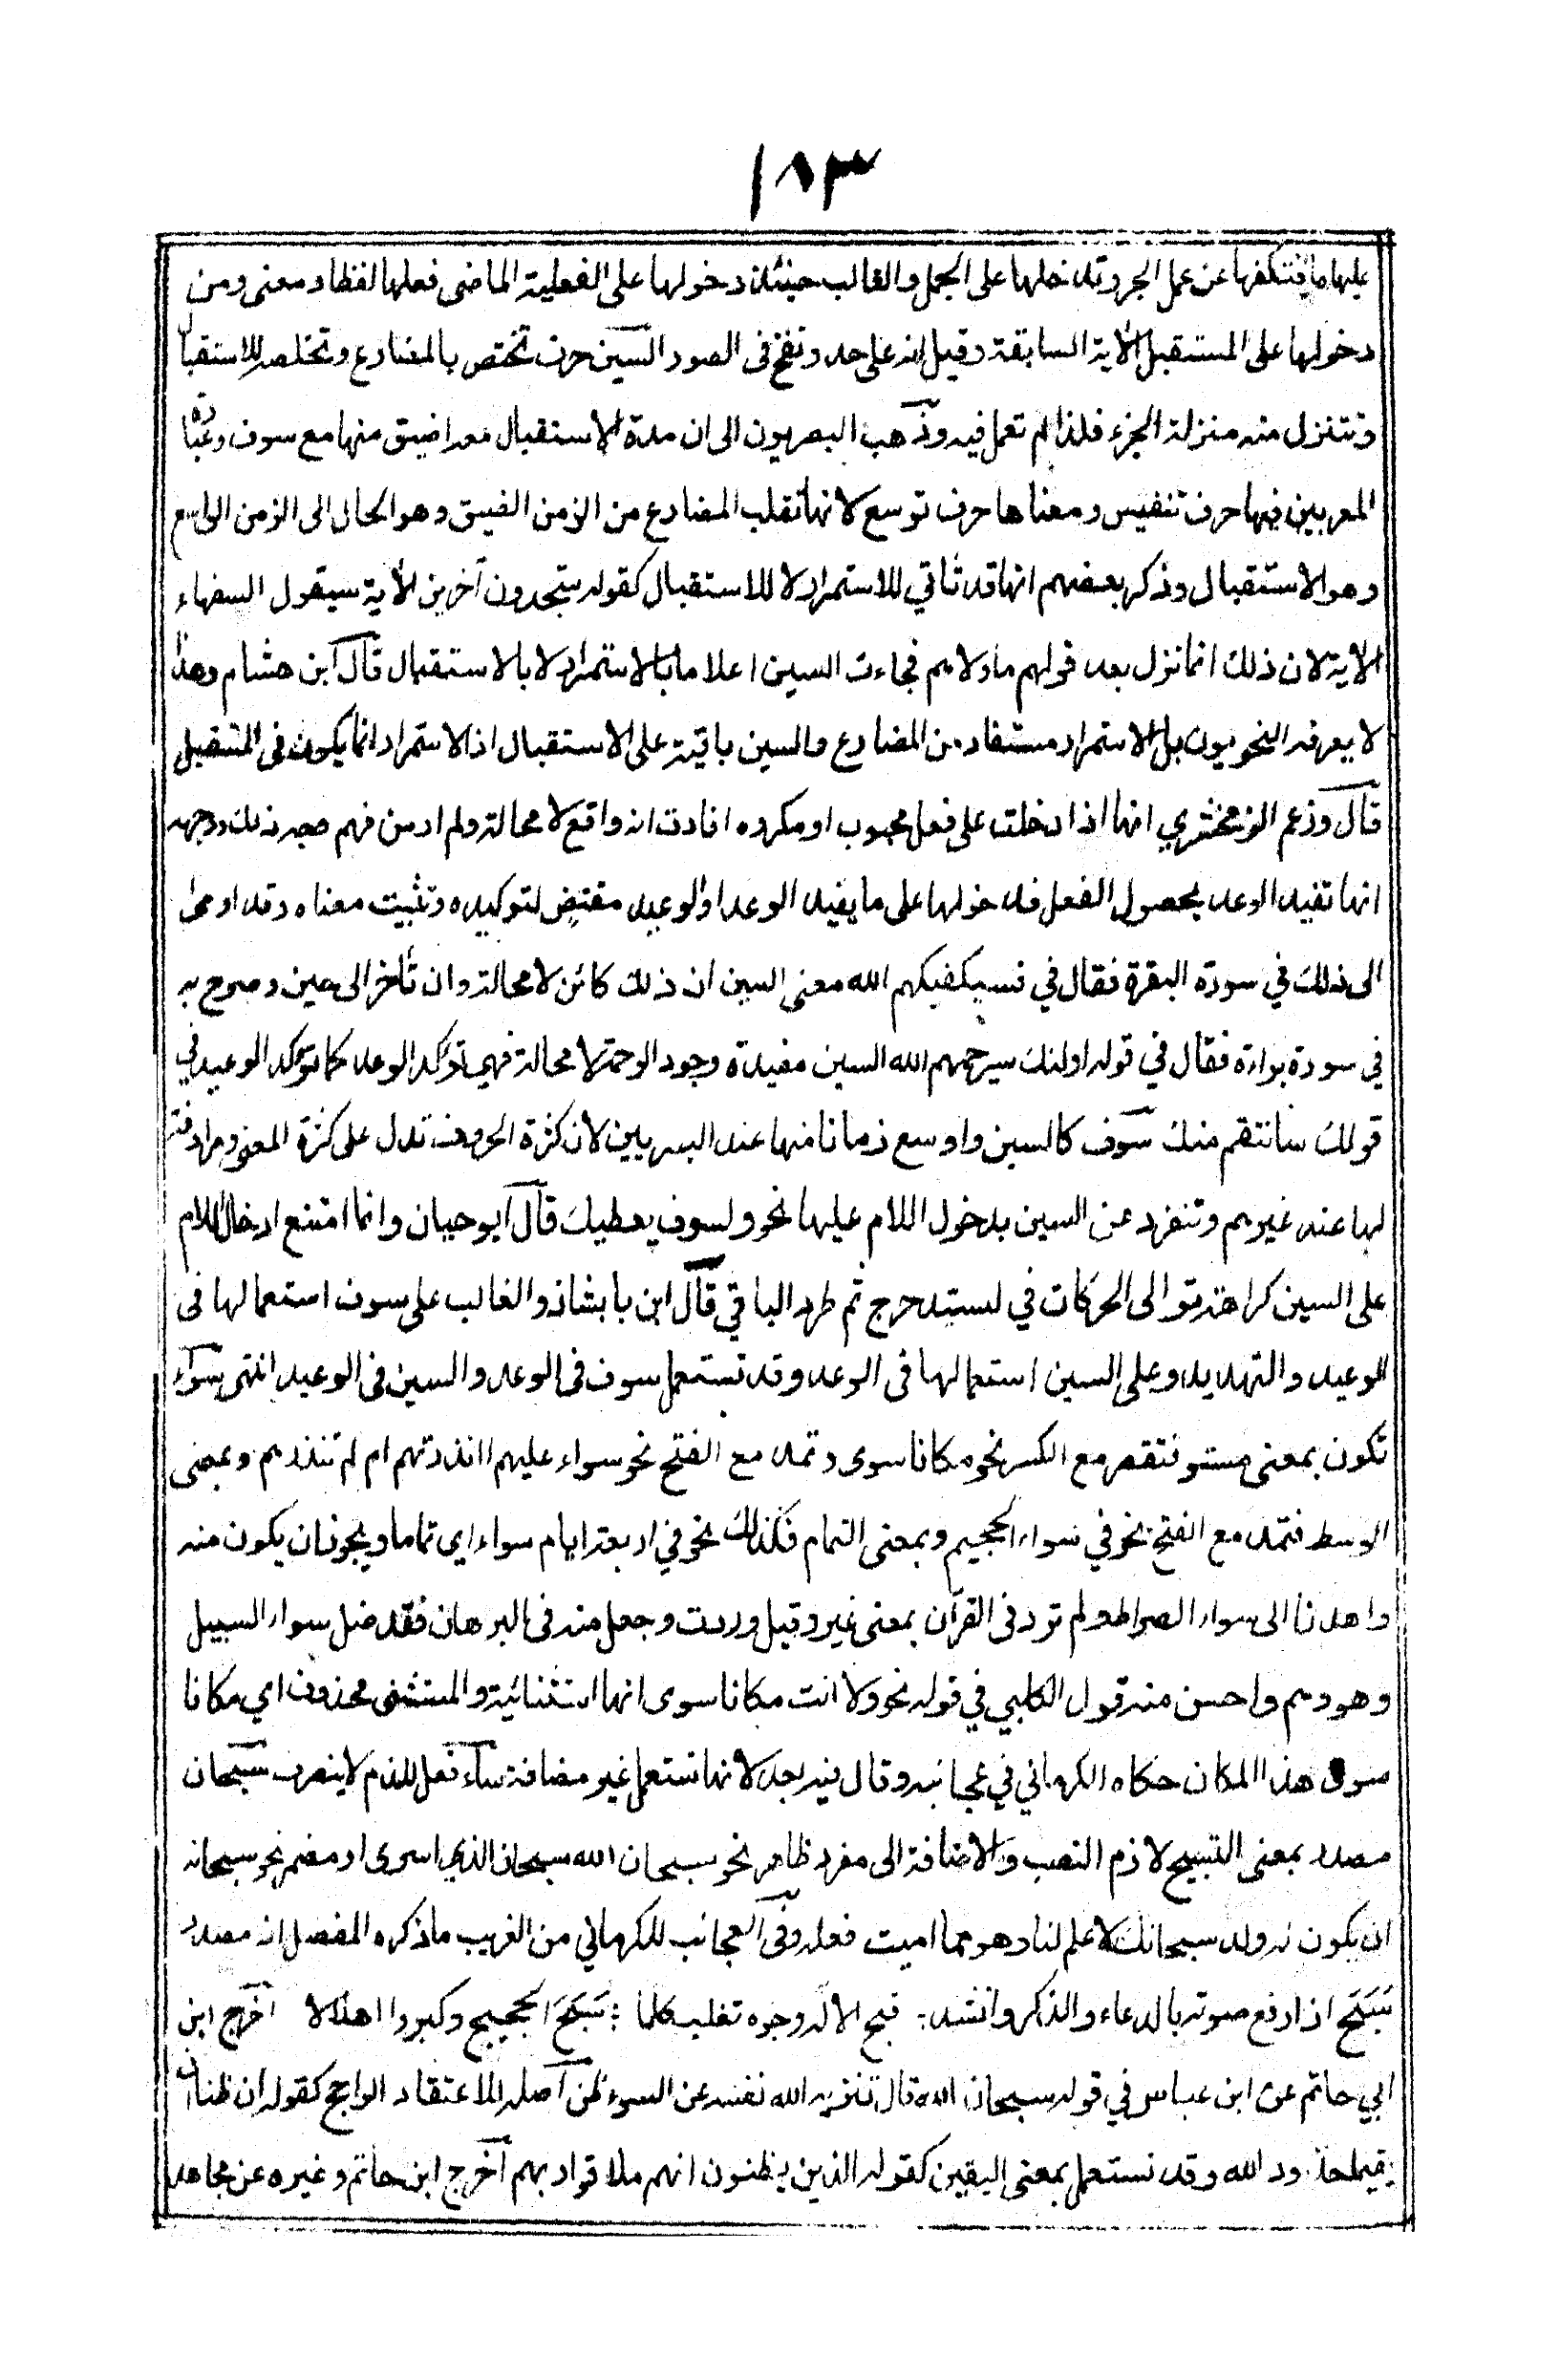 ١٨٣
عليها ما فتكفها عن عمل الجر وتدخلها على الجمل والغالب حينئذ دخولها على الفعلية الماضى فعلها لفظا ومعنى ومن
دخولها على المستقبل الآية السابقة وقيل انه على حد ونفخ فى الصور السين حرف تختص بالمضارع وتخلصه للاستقبال
وتتنزل منه منزلة الجزء فلذا لم تعمل فيه وذهب البصريون الى ان مدة الاستقبال معه اضيق منها مع سوف وعبارة
المعربين فيها حرف تنفيس ومعناها حرف توسع لانها تقلب المضارع من الزمن الضيق وهو الحال الى الزمن الواسع
وهو الاستقبال وذكر بعضهم انها قد تأتي للاستمرار لا للاستقبال كقوله ستجدون آخرين الآية سيقول السفهاء
الاية لان ذلك انما نزل بعد قولهم ما ولاهم فجاءت السين اعلاما بالاستمرار لا بالاستقبال قال ابن هشام وهذا
لا يعرفه النحويون بل الاستمرار مستفاد من المضارع والسين باقية على الاستقبال اذ الاستمرار انما يكون فى المستقبل
قال وزعم الزمخشري انها اذا دخلت على فعل محبوب او مكروه افادت انه واقع لا محالة ولم ار من فهم وجه ذلك ووجهه
انها تفيد الوعد بحصول الفعل فدخولها على ما يفيد الوعد او الوعيد مقتضٍ لتوكيده وتثبيت معناه وقد اومى
الى ذلك في سورة البقرة فقال في فسيكفيكهم الله معنى السين ان ذلك كائن لا محالة وان تأخر الى حين وصرح به
في سورة براءة فقال في قوله اولئك سيرحمهم الله السين مفيدة وجود الرحمة لا محالة فهي تؤكد الوعد كما تؤكد الوعيد في
قولك سانتقم منك سوف كالسين واوسع زمانا منها عند البصريين لان كثرة الحروف تدل على كثرة المعنى ومرادفة
لها عند غيرهم وتنفرد عن السين بدخول اللام عليها نحو ولسوف يعطيك قال ابو حيان وانما امتنع ادخال اللام
على السين كراهة توالى الحركات في لسيتدحرج ثم طرد الباقي قال ابن بابشاذ والغالب على سوف استعمالها فى
الوعيد والتهديد وعلى السين استعمالها فى الوعد وقد تستعمل سوف فى الوعد والسين فى الوعيد انتهى سواء
تكون بمعنى مستو فتقصر مع الكسر نحو مكانا سوى وتمد مع الفتح نحو سواء عليهم اانذرتهم ام لم تنذرهم وبمعنى
الوسط فتمد مع الفتح نحو في سواء الجحيم وبمعنى التمام فكذلك نحو في اربعة ايام سواء اي تماما ويجوز ان يكون منه
واهدنا الى سواء الصراط ولم ترد فى القرآن بمعنى غير وقيل وردت وجعل منه فى البرهان فقد ضل سواء السبيل
وهو وهم واحسن منه قول الكلبي في قوله نحو ولا انت مكانا سوى انها استثنائية والمستثنى محذوف اي مكانا
سوى هذا المكان حكاه الكرماني في عجائبه وقال فيه بعد لانها تستعمل غير مضافة ساء فعل للذم لا ينصرف سبحان
مصدر بمعنى التسبيح لازم النصب والاضافة الى مفرد ظاهر نحو سبحان الله سبحان الذي اسرى او مضمر نحو سبحانه
ان يكون له ولد سبحانك لا علم لنا وهو مما اميت فعله وفى العجائب للكرماني من الغريب ما ذكره المفصل انه مصدر
سَبَحَ اذا رفع صوته بالدعاء والذكر وانشد: قبح الاله وجوه تغلب كلما : سَبَحَ الحجيج وكبروا اهلالا اخرج ابن
ابي حاتم عن ابن عباس في قوله سبحان الله قال تنزيه الله نفسه عن السوء ظن اصله للاعتقاد الراجح كقوله ان ظنا ان
يقيما حدود الله وقد تستعمل بمعنى اليقين كقوله الذين يظنون انهم ملاقوا ربهم اخرج ابن حاتم وغيره عن مجاهد